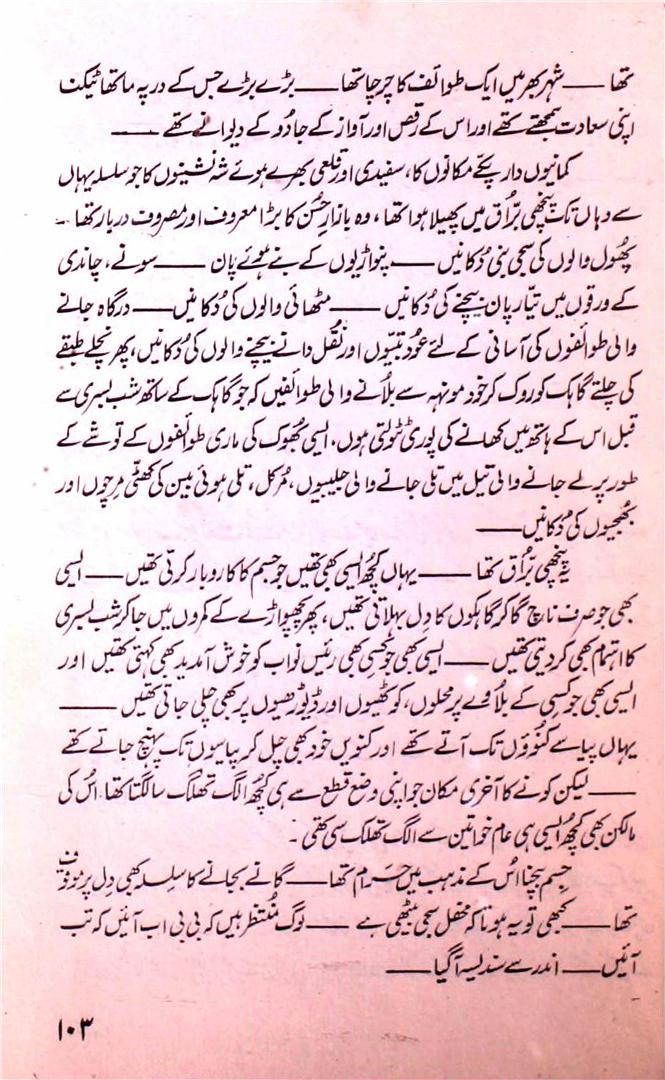 تھا —— شہر بھر میں ایک طوائف کا چرچا تھا —— بڑے بڑے جس کے در پہ ماتھا ٹیکنا
اپنی سعادت سمجھتے تھے اور اس کے رقص اور آواز کے جادُو کے دیوانے تھے ——
کمانیوں دار پکّے مکانوں کا، سفیدی اور قلعی بھرے ہوئے شہ نشینوں کا جو سلسلہ یہاں
سے وہاں تک پنچھی برّاق میں پھیلا ہوا تھا، وہ بازارِ حُسن کا بڑا معروف اور مصروف دربار تھا ۔
پھُول والوں کی سجی بنی دُکانیں —— پنواڑیوں کے بنے ہوئے پان —— سونے، چاندی
کے ورقوں میں تیّار پان بیچنے کی دُکانیں —— مٹھائی والوں کی دُکانیں —— درگاہ جانے
والی طوائفوں کی آسانی کے لئے عُود بتیّوں اور نُقل دانے بیچنے والوں کی دُکانیں، پھر نچلے طبقے
کی چلتے گاہک کو روک کر خود مونہہ سے بلانے والی طوائفیں کہ جو گاہک کے ساتھ شب بسری سے
قبل اس کے ہاتھ میں کھانے کی پوری ٹٹولتی ہوں. ایسی بُھوک کی ماری طوائفوں کے توشے کے
طور پر لے جانے والی تیل میں تلی جانے والی جلیبیوں، مُرکل، تلی ہوئی بیسن کی کھٹّی مرچوں اور
بُھجیوں کی دُکانیں ——
یہ پنچھی برّاق تھا —— یہاں کچُھ ایسی بھی تھیں جو جسم کا کاروبار کرتی تھیں —— ایسی
بھی جو صرف ناچ گا کر گاہکوں کا دِل بہلاتی تھیں، پھر پچھواڑے کے کمروں میں جا کر شب بسری
کا اہتمام بھی کر دیتی تھیں —— ایسی بھی جو کسِی بھی رئیس نواب کو خوش آمدید بھی کہتی تھیں اور
ایسی بھی جو کسِی کے بلاوے پر محلوں، کوٹھیوں اور ڈیوڑھیوں پر بھی چلی جاتی تھیں ——
یہاں پیاسے کنوؤں تک آتے تھے اور کنویں خود بھی چل کر پیاسوں تک پہنچ جاتے تھے
—— لیکن کونے کا آخری مکان جو اپنی وضع قطع سے ہی کچُھ الگ تھلگ سا لگتا تھا. اُس کی
مالکن بھی کچُھ ایسی ہی عام خواتین سے الگ تھلگ سی تھی ۔
جِسم بیچنا اُس کے مذہب میں حَرام تھا —— گانے بجانے کا سلِسلہ بھی دِل پر موقوف
تھا —— کبھی تو یہ ہوتا کہ محفل سجی بیٹھی ہے —— لوگ مُنتظر ہیں کہ بی بی اب آئیں کہ تب
آئیں —— اندر سے سندیسہ آگیا ——
۱۰۳